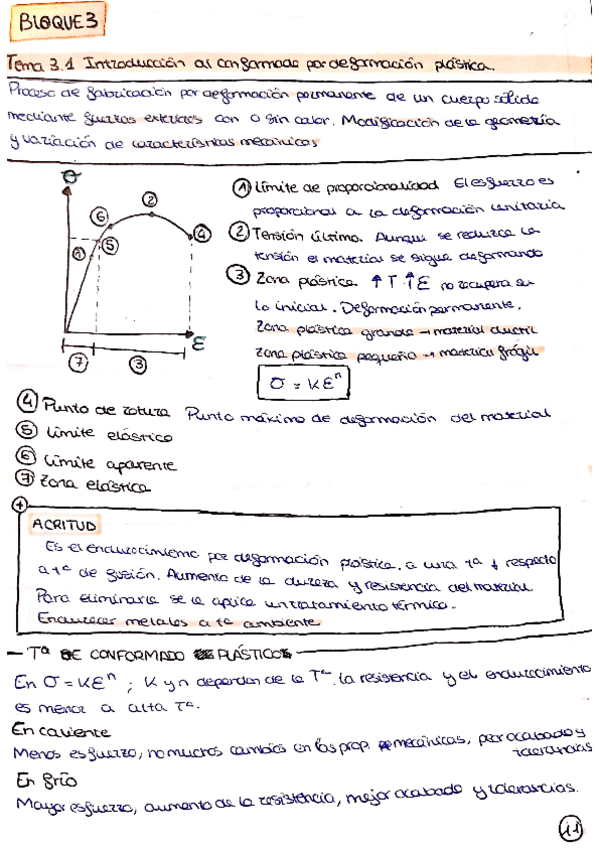 BLOQUE 3
Tema 3.1 Introducción al conformado por deformación plástica.
Proceso de fabricación por deformación permanente de un cuerpo sólido
mediante fuerzas externas con o sin calor. Modificación de la geometría
y variación de características mecánicas
σ
ε
① ② ③ ④ ⑤ ⑥ ⑦
① Límite de proporcionalidad El esfuerzo es
proporcional a la deformación unitaria
② Tensión última. Aunque se reduzca la
tensión el material se sigue deformando
③ Zona plástica ↑T ↑ε no recupera su
lo inicial. Deformación permanente.
Zona plástica grande → material ductil
Zona plástica pequeña → material frágil
σ = Kεⁿ
④ Punto de rotura Punto máximo de deformación del material
⑤ Límite elástico
⑥ Límite aparente
⑦ Zona elástica
+
ACRITUD
Es el endurecimiento por deformación plástica, a una tª ↓ respecto
a tª de fusión. Aumento de la dureza y resistencia del material.
Para eliminarla se le aplica un tratamiento térmico.
Endurecer metales a tª ambiente
— Tª DE CONFORMADO PLÁSTICO
En σ = Kεⁿ ; K y n dependen de la Tª. la resistencia y el endurecimiento
es menor a alta Tª.
En caliente
Menos esfuerzo, no muchos cambios en las prop. mecánicas, peor acabado y
tolerancias
En frío
Mayor esfuerzo, aumento de la resistencia, mejor acabado y tolerancias.
11